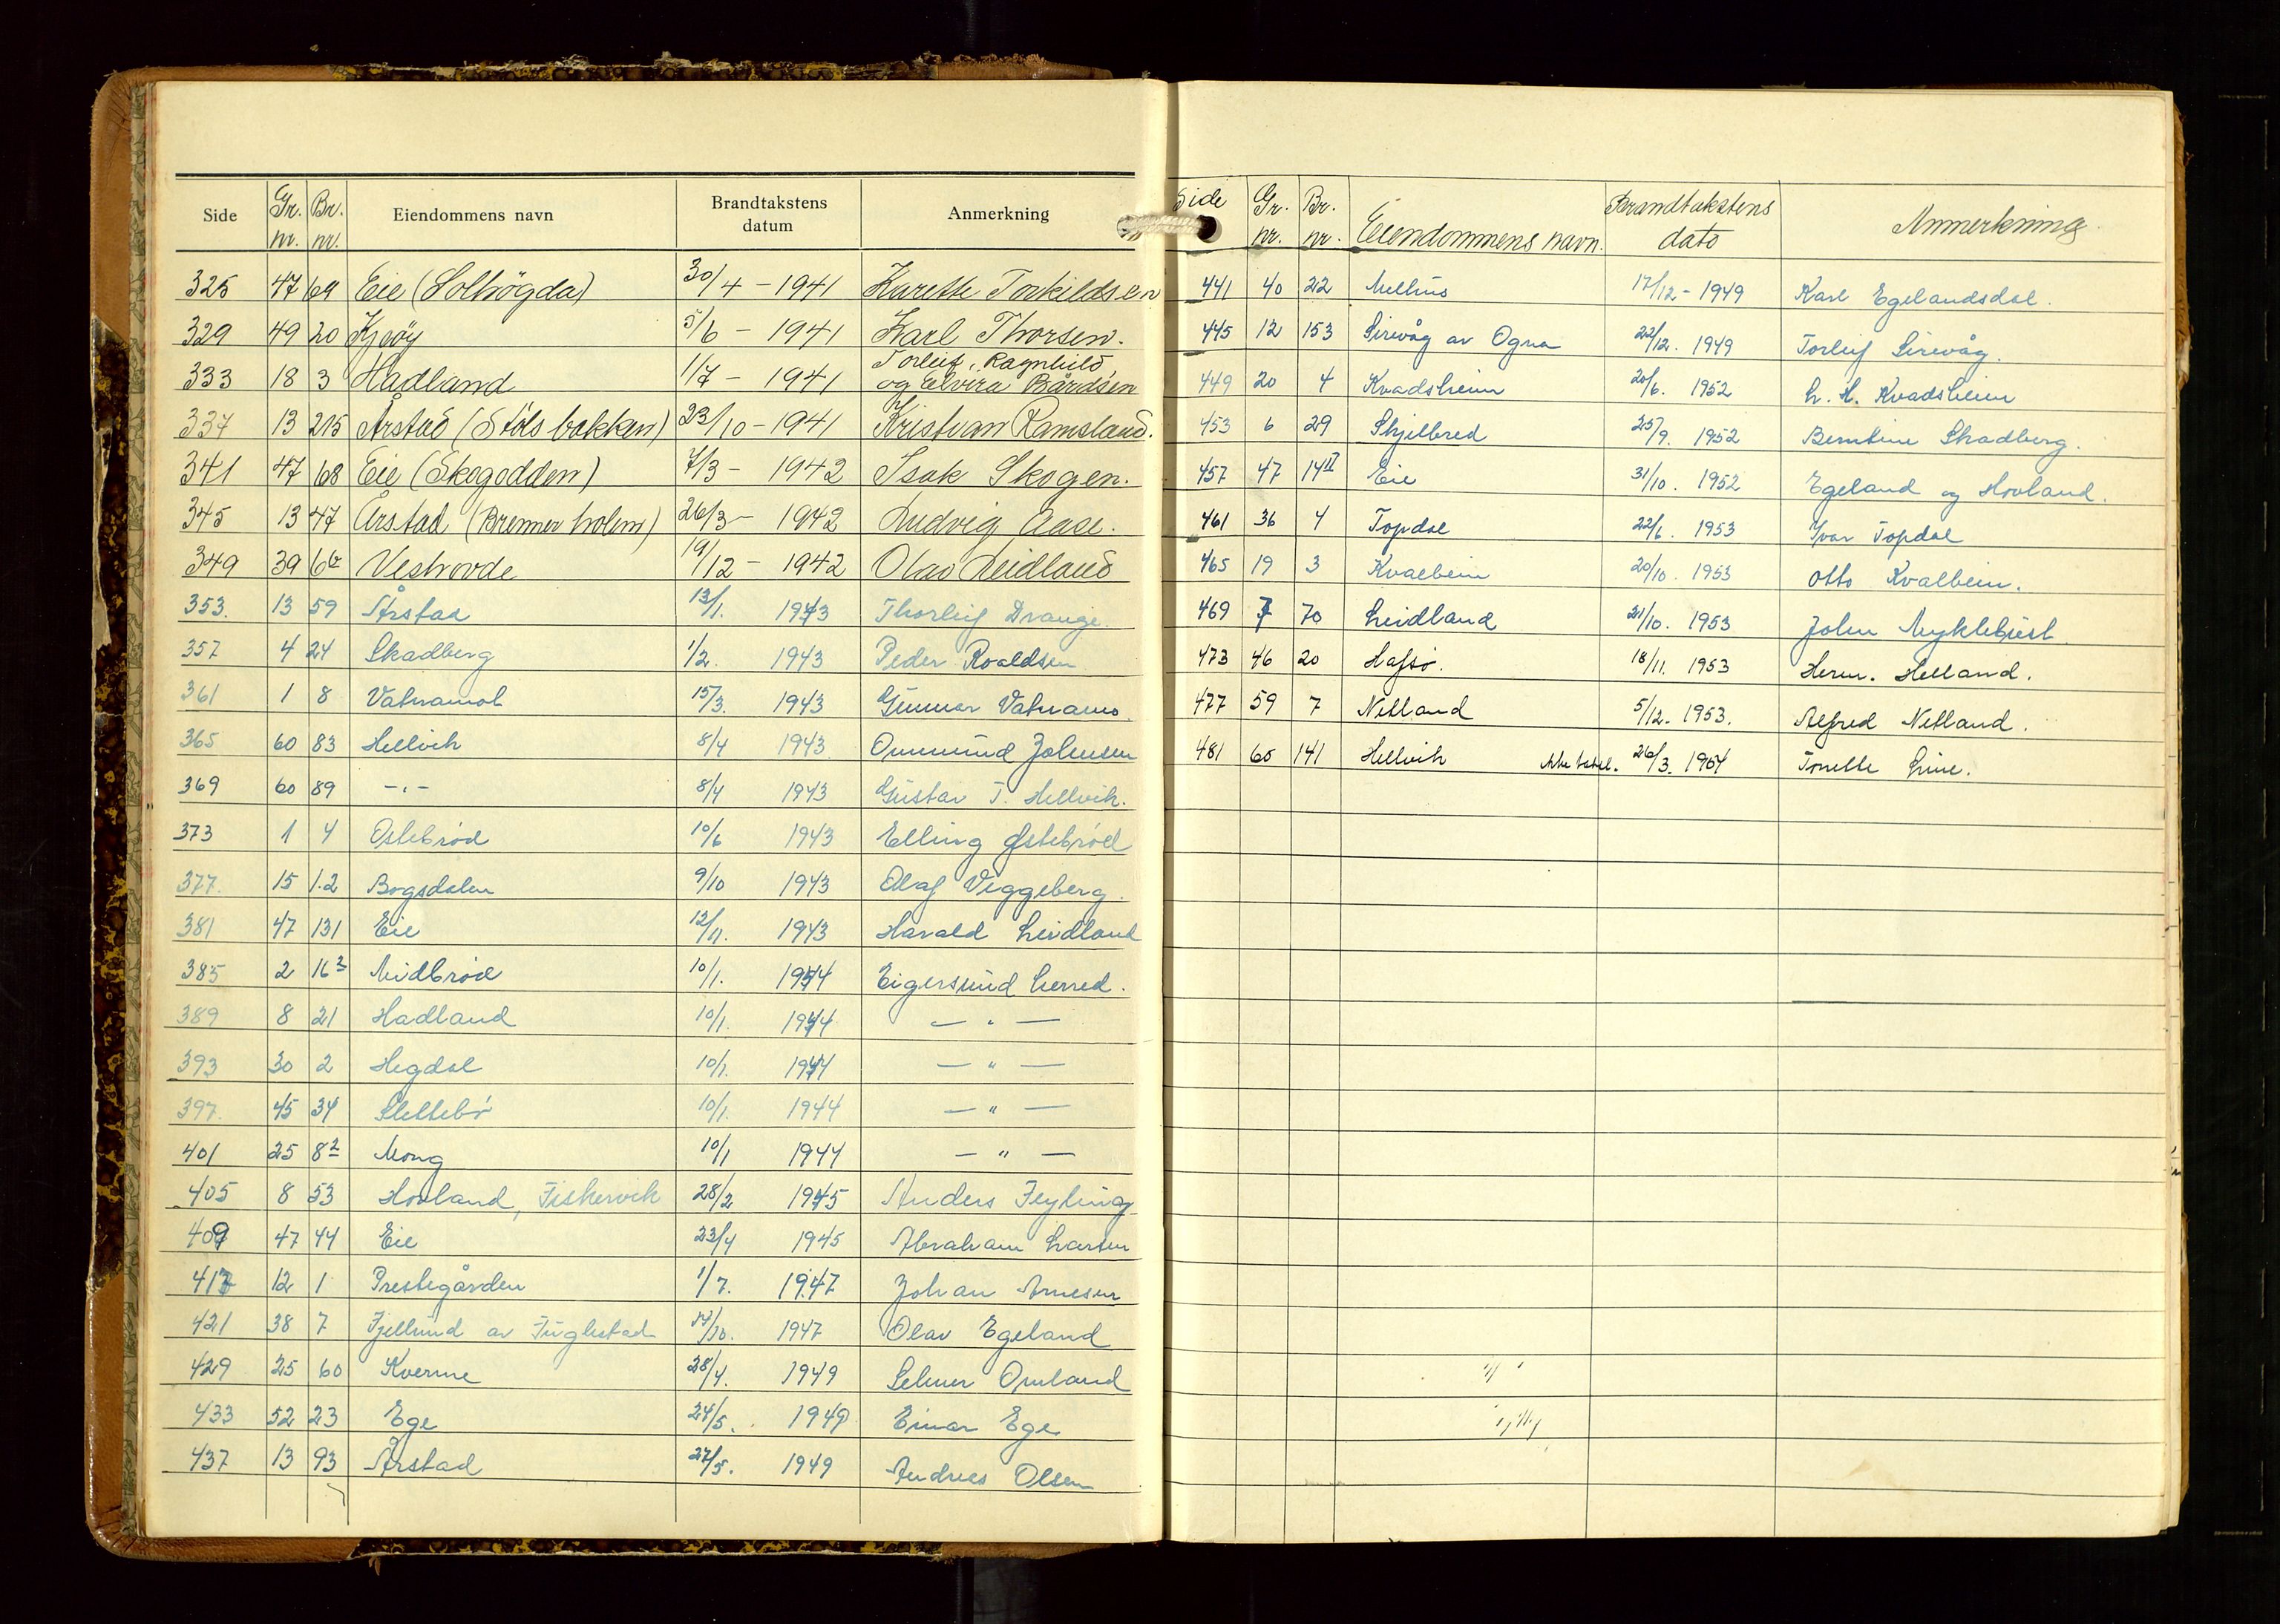 Side Gr. nr. Br. nr. Eiendommens navn Brandtakstens datum Anmerkning
325 47 69 Eie (Solhögda) 30/4 - 1941 Karette Torkildsen
329 49 20 Kjeöy 5/6 - 1941 Karl Thorsen.
333 18 3 Hadland 1/7 - 1941 Torleif, Ragnhild og Elvira Bårdsen
337 13 215 Årstad (Stölsbakken) 23/10 - 1941 Kristian Ramsland.
341 47 68 Eie (Skogodden) 7/3 - 1942 Isak Skogen.
345 13 47 Årstad (Brennerholm) 26/3 - 1942 Ludvig Aase.
349 39 Veshovde 19/12 - 1942 Olav Leidland
353. 13 59 Årstad 13/1. 1943 Thorleif Drange.
357 4 24 Skadberg 1/2. 1943 Peder Roaldsen
361 1 8 Vatnamot 15/3. 1943 Gunnar Vatnamo.
365 60 83 Hellvik 8/4 1943. Ommund Johnsen
369 60 89 -"- 8/4 1943 Gustav T. Hellvik.
373 1 4 Ostebröd 10/6 1943 Elling Østebröd
377. 15 1.2 Bogsdalen 9/10 1943 Olaf Veggeberg.
381 47 131 Eie 12/11. 1943 Harald Leidland
385 2 16² Midbröd 10/1. 1944 Eigersund herred.
389 8 21 Hadland 10/1. 1944 — " —
393 30 2 Hegdal 10/1. 1944 — " —
397. 45 34 Slettebö 10/1. 1944 — " —
401 25 8² Mong 10/1 1944 — " —
405 8 53 Hovland, Fiskervik 28/2 1945 Anders Feyling
409 47 44 Eie 23/4 1945 Abraham Larsen
417 12 1 Prestegården 1/7. 1947 Johan Arnesen
421 38 7 Fjellund av Fuglestad 14/10. 1947 Olav Egeland
429 25 60 Kverme 28/4. 1949 Selmer Omland
433 52 23 Ege 24/5. 1949 Einar Ege
437 13 93 Årstad 27/5. 1949 Andreas Olsen
Side Gr. nr. Br. nr. Eiendommens navn. Brandtakstens dato Anmerkning
441 40 22 Melhus 17/12 - 1949 Karl Egelandsdal.
445 12 153 Sirevåg av Ogna 22/12. 1949 Torleif Sirevåg.
449 20 4 Kvadsheim 20/6. 1952 L. H. Kvadsheim
453 6 29 Skjelbred 25/9. 1952 Berntine Skadberg.
457 47 14II Eie 31/10. 1952 Egeland og Hovland.
461 36 4 Topdal 22/6. 1953 Ivar Topdal
465 19 3 Kvalbein 20/10. 1953 Otto Kvalbein.
469 7 70 Leidland 21/10. 1953 John Myklebust
473 46 20 Hafsö. 18/11. 1953 Herm. Helland.
477 59 7 Netland 5/12. 1953. Alfred Netland.
481 60 141 Hellvik Ikke betal. 26/3. 1954 Tonette Line.